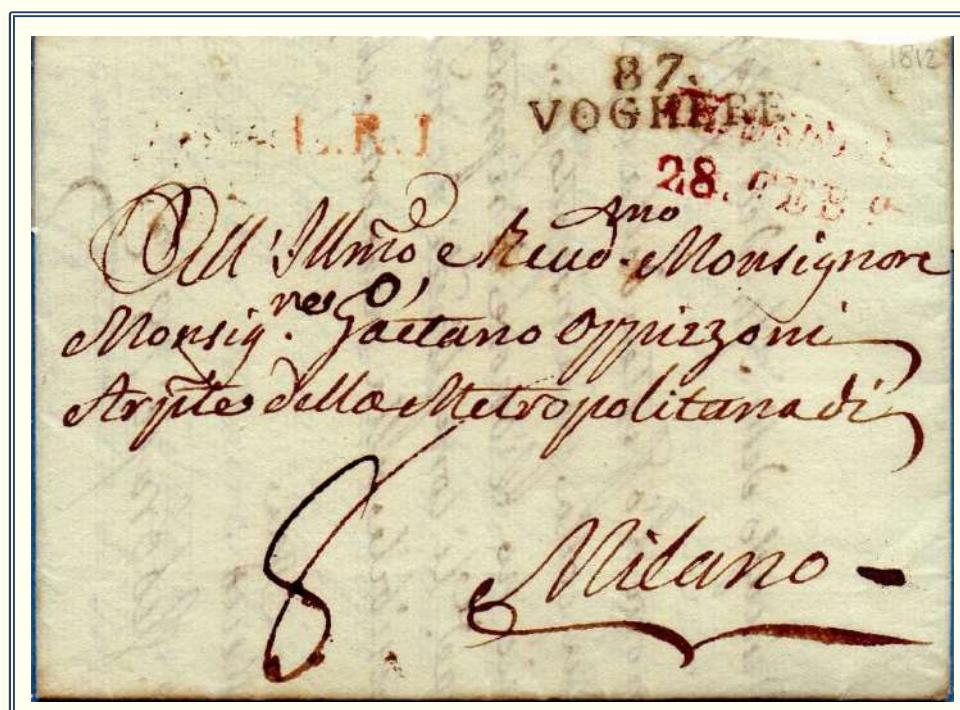 1812
87.
VOGHERE
L.R.I
28. FEB
All' Illmo e Revd.mo Monsignore
Monsig.re Gaetano Oppizzoni
Arpte della Metropolitana di
8
Milano